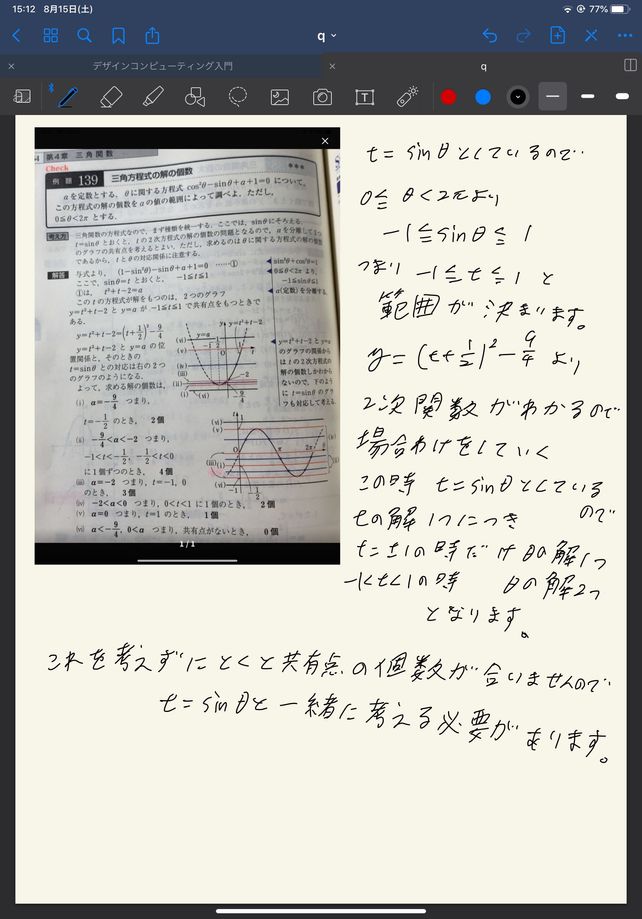 15:12 8月15日(土)
77%
q
デザインコンピューティング入門
q
第4章 三角関数
Check
例題 139 三角方程式の解の個数 ***
aを定数とする．θに関する方程式 cos²θ−sinθ+a+1=0 について，
この方程式の解の個数をaの値の範囲によって調べよ．ただし，
0≦θ<2π とする．
考え方 三角関数の方程式なので，まず種類を統一する．ここでは，sinθにそろえる．
t=sinθ とおくと，tの2次方程式の解の個数の問題となるので，aを分離して2つ
のグラフの共有点を考えるとよい．ただし，求めるのはθに関する方程式の解の個数
であるから，tとθの対応関係に注意する．
解答 与式より，(1−sin²θ)−sinθ+a+1=0 ……①
ここで，sinθ=t とおくと，−1≦t≦1
①は，t²+t−2=a
このtの方程式が解をもつのは，2つのグラフ
y=t²+t−2 と y=a が −1≦t≦1 で共有点をもつときで
ある．
sin²θ+cos²θ=1
0≦θ<2π より，
−1≦sinθ≦1
a(定数)を分離する．
y=t²+t−2=(t+1/2)²−9/4
y=t²+t−2 と y=a の位
置関係と，そのときの
t=sinθ との対応は右の2つ
のグラフのようになる．
よって，求める解の個数は，
y=t²+t−2 と y=a
のグラフの関係から
は t の2次方程式
の解の個数しかわから
ないので，下のよう
に t=sinθ のグラ
フも対応して考える．
(i) a=−9/4 つまり，
t=−1/2 のとき，2個
(ii) −9/4<a<−2 つまり，
−1<t<−1/2，−1/2<t<0
に1個ずつのとき，4個
(iii) a=−2 つまり，t=−1, 0
のとき，3個
(iv) −2<a<0 つまり，0<t<1 に1個のとき，2個
(v) a=0 つまり，t=1 のとき，1個
(vi) a<−9/4，0<a つまり，共有点がないとき，0個
1/1
t=sinθとしているので‥
0≦θ<2πより
−1≦sinθ≦1
つまり −1≦t≦1 と
範囲が決まります。
y=(t+1/2)²−9/4 より
2次関数がわかるので
場合わけをしていく
この時 t=sinθとしている
ので
tの解1つにつき
t=±1の時だけθの解1つ
−1<t<1の時 θの解2つ
となります。
これを考えずにとくと共有点の個数が合いませんので
t=sinθと一緒に考える必要があります。